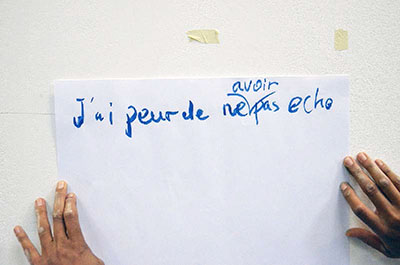 avoir
J'ai peur de ne pas echo